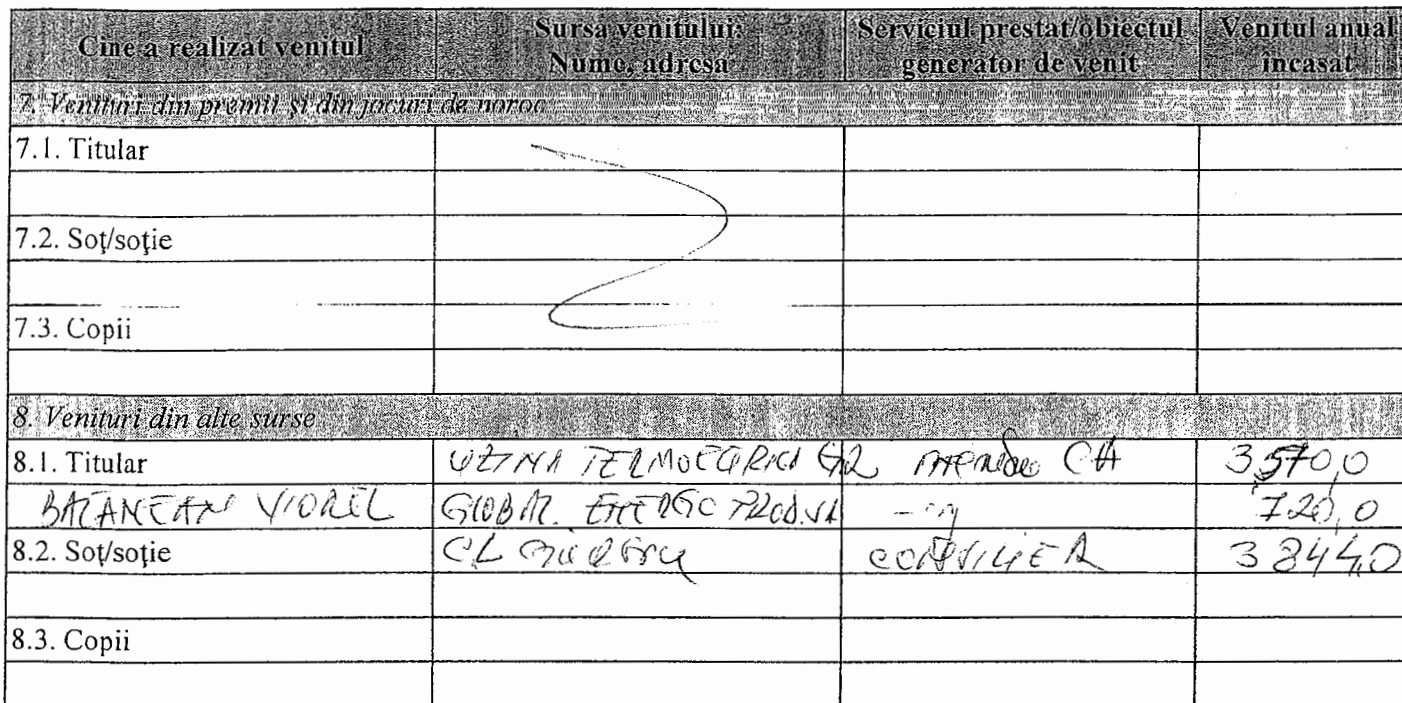 Cine a realizat venitul
Sursa venitului:
Nume, adresa
Serviciul prestat/obiectul
generator de venit
Venitul anual
încasat
7. Venituri din premii și din jocuri de noroc
7.1. Titular
7.2. Soț/soție
7.3. Copii
8. Venituri din alte surse
8.1. Titular UZINA TERMOELECTRICA CH 3570,0
VIOREL GLOBAL ENERGO PROD. 720,0
8.2. Soț/soție CL CONSILIER 3844,0
8.3. Copii